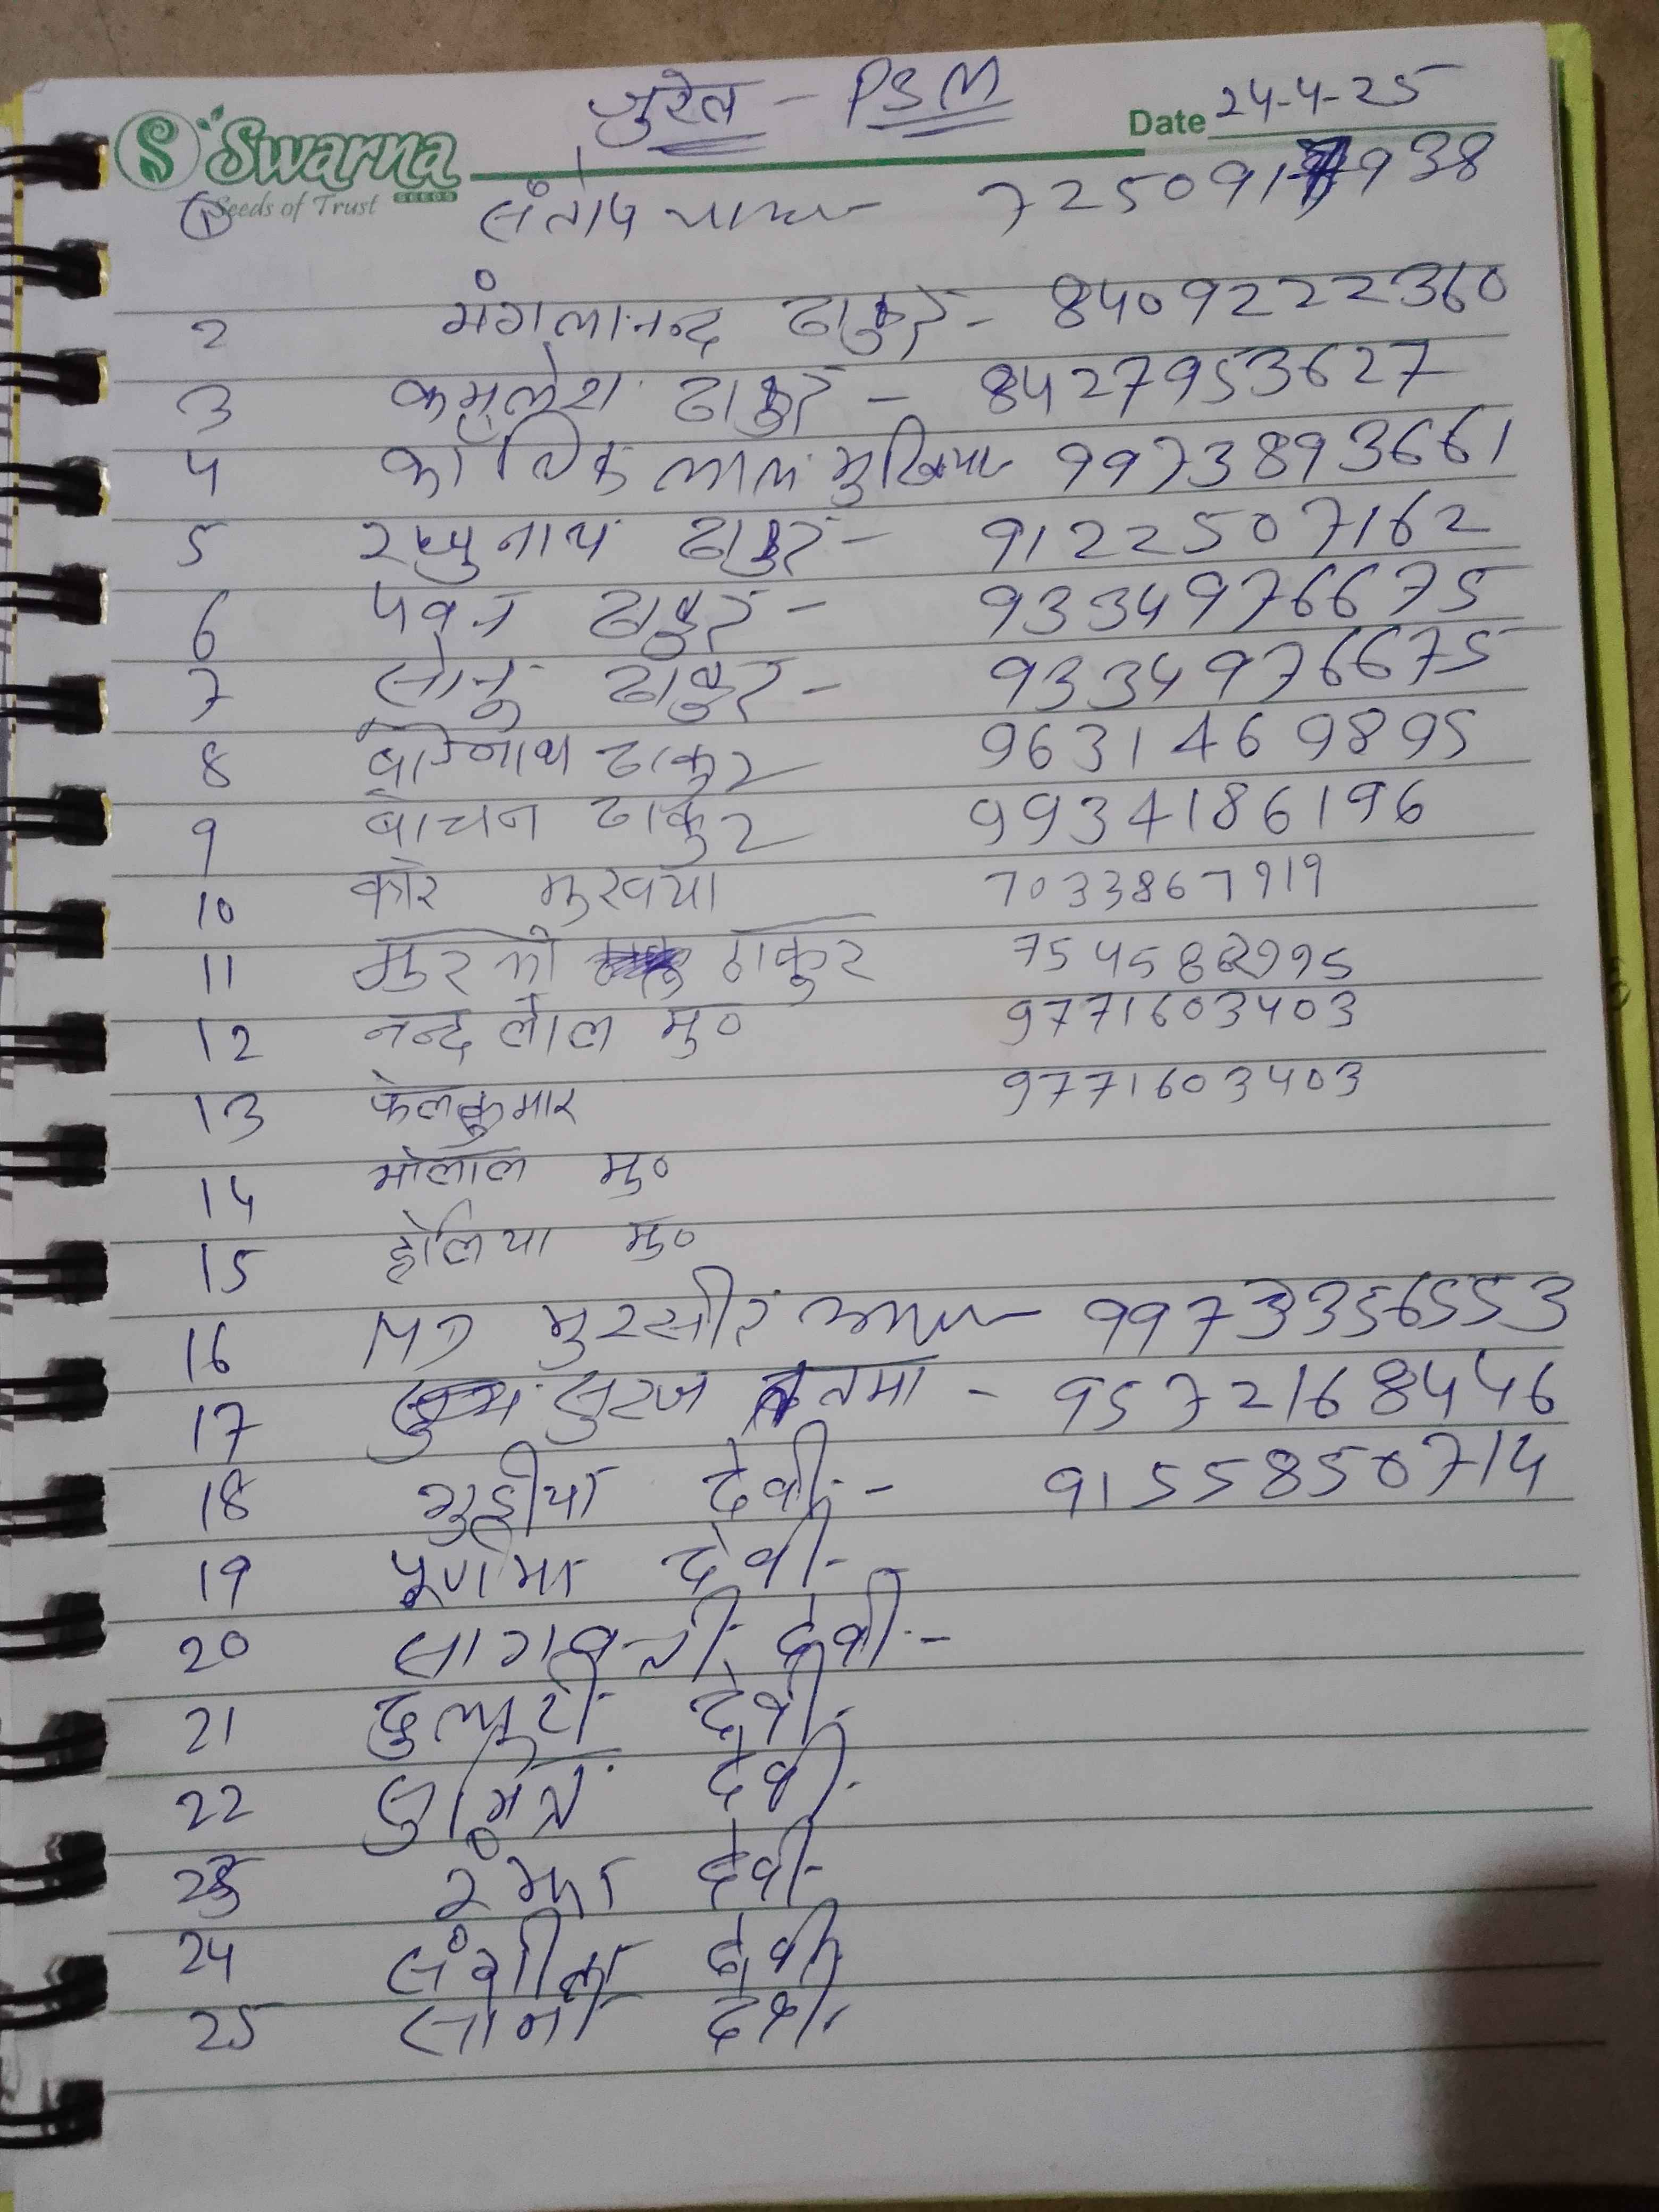 जुरेल - PSM
Swarna
SEEDS
Seeds of Trust
Date 24-4-25
1 संतोष 
2 मंगलानन्द ठाकुर - 8409222360
3 कमलेश ठाकुर - 8427953627
4 कार्तिक लाल मुखिया 9973893661
5 रघुनाथ ठाकुर - 9122507162
6 पवन ठाकुर - 9334976675
7 सोनु ठाकुर - 9334976675
8 ठाकुर 9631469895
9 बोचन ठाकुर 9934186196
10 कारे मुखया 7033867919
11 मुरली ठाकुर
12 नन्द लाल मु० 9771603403
13 फेलकुमार 9771603403
14 भोलाल मु०
15 होलिया मु०
16 MD मुरसीद
17 सुरज ततमा - 9572168446
18 गुड़ीया देवी - 9155850714
19 पूर्णीमा देवी -
20 देवी -
21 दुलारी देवी
22 सुमित्रा देवी
23 रंभा देवी
24 देवी
25 सोनी देवी